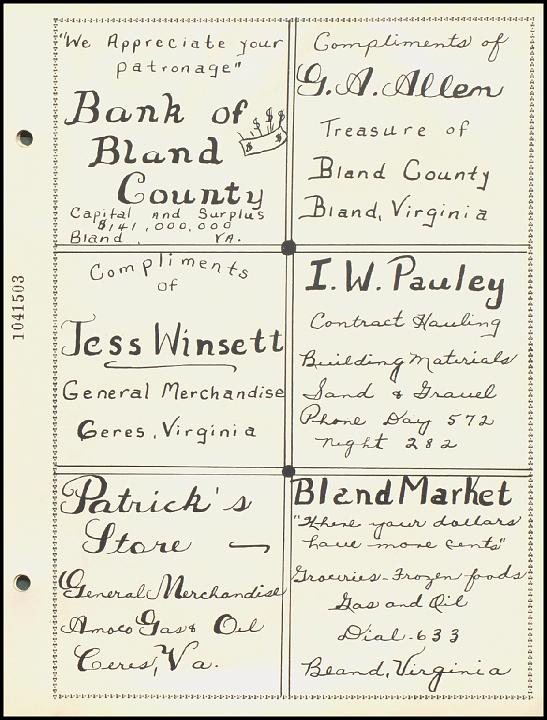 "We Appreciate your
patronage"
Bank of
Bland
County
Capital and Surplus
$141,000,000
Bland, VA.
Compliments of
G. A. Allen
Treasure of
Bland County
Bland, Virginia
Compliments
of
Jess Winsett
General Merchandise
Ceres, Virginia
I. W. Pauley
Contract Hauling
Building Materials
Sand & Gravel
Phone Day 572
night 282
Patrick's
Store
General Merchandise
Amoco Gas & Oil
Ceres, Va.
Bland Market
"Where your dollars
have more cents"
Groceries-Frozen foods
Gas and Oil
Dial-633
Bland, Virginia
1041503